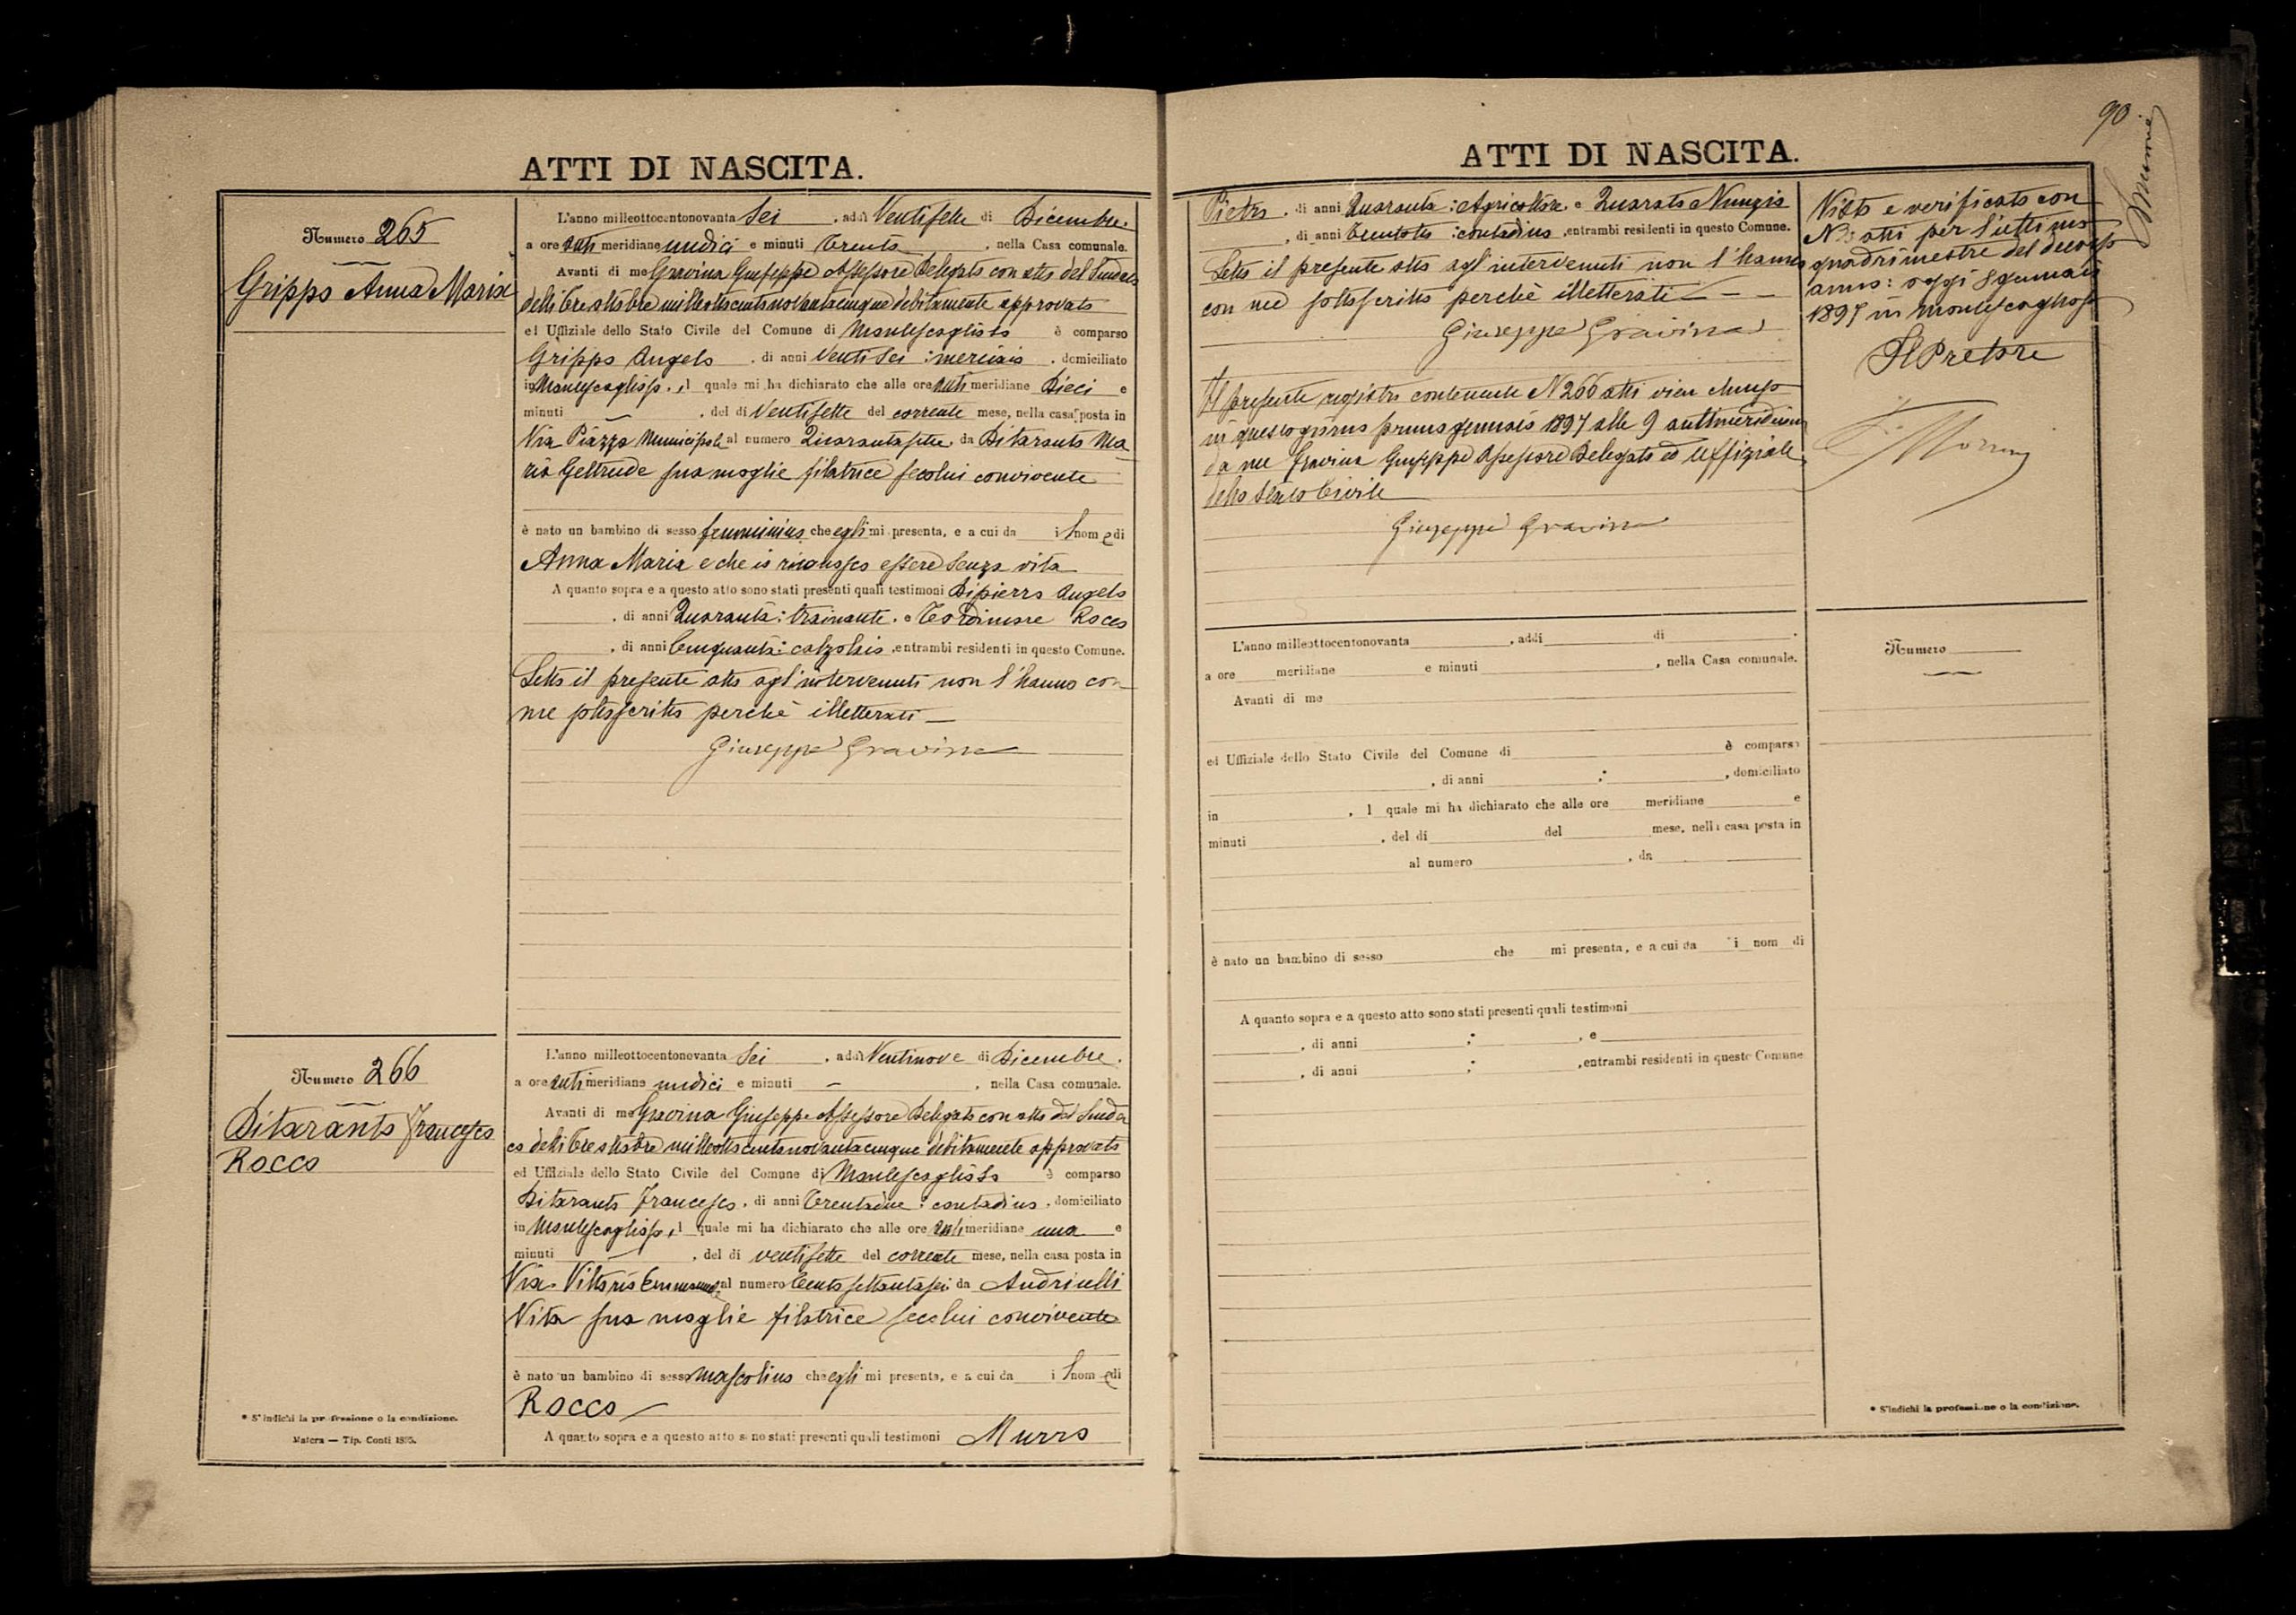 ATTI DI NASCITA.
Numero 265
Grippo Anna Maria
L'anno milleottocentonovanta Sei, addì Ventisette di Dicembre.
a ore anti meridiane undici e minuti trenta, nella Casa comunale.
Avanti di me Gravina Giuseppe Assessore Delegato con atto del Sindaco
delli tre ottobre milleottocentonovantacinque debitamente approvato
ed Uffiziale dello Stato Civile del Comune di Montescaglioso è comparso
Grippo Angelo, di anni Venti Sei : merciaio, domiciliato
in Montescaglioso, il quale mi ha dichiarato che alle ore anti meridiane Dieci e
minuti —, del dì Ventisette del corrente mese, nella casa posta in
Via Piazza Municipale al numero Quarantasette, da Ditaranto Ma
ria Geltrude sua moglie filatrice secolui convivente
è nato un bambino di sesso femminino che egli mi presenta, e a cui da i l nome di
Anna Maria e che io riconosco essere senza vita
A quanto sopra e a questo atto sono stati presenti quali testimoni Dipierro Angelo
, di anni Quaranta : trainante, e Rocco
, di anni Cinquanta : calzolaio, entrambi residenti in questo Comune.
Letto il presente atto agl'intervenuti non l'hanno con
me sottoscritto perchè illetterati —
Giuseppe Gravina
Numero 266
Ditaranto Francesco
Rocco
* S'indichi la professione o la condizione.
Matera — Tip. Conti 1895.
L'anno milleottocentonovanta Sei, addì Ventinove di Dicembre.
a ore anti meridiane undici e minuti —, nella Casa comunale.
Avanti di me Gravina Giuseppe Assessore Delegato con atto del Sinda
co delli tre ottobre milleottocentonovantacinque debitamente approvato
ed Uffiziale dello Stato Civile del Comune di Montescaglioso è comparso
Ditaranto Francesco, di anni trentadue : contadino, domiciliato
in Montescaglioso, il quale mi ha dichiarato che alle ore anti meridiane una e
minuti —, del dì ventisette del corrente mese, nella casa posta in
Via Vittorio Emmanuele al numero Cento settantasei da Andriulli
Vita sua moglie filatrice secolui convivente
è nato un bambino di sesso mascolino che egli mi presenta, e a cui da i l nome di
Rocco —
A quanto sopra e a questo atto sono stati presenti quali testimoni Murro
90
ATTI DI NASCITA.
Pietro, di anni Quaranta : Agricoltore e Quarato Nunzio
, di anni : contadino, entrambi residenti in questo Comune.
Letto il presente atto agl'intervenuti non l'hanno
con me sottoscritto perchè illetterati — — —
Giuseppe Gravina
Il presente registro contenente N 266 atti vien chiuso
in questo giorno primo gennaio 1897 alle 9 antimeridiane
da me Gravina Giuseppe Assessore Delegato ed Uffiziale
dello Stato Civile
Giuseppe Gravina
Visto e verificato con
N atti per l'ultimo
quadrimestre del decorso
anno: oggi gennaio
1897 in Montescaglioso
Il Pretore
L'anno milleottocentonovanta , addì di .
a ore meridiane e minuti , nella Casa comunale.
Avanti di me
ed Uffiziale dello Stato Civile del Comune di è comparso
, di anni : , domiciliato
in , l quale mi ha dichiarato che alle ore meridiane e
minuti , del dì del mese, nella casa posta in
al numero , da
è nato un bambino di sesso che mi presenta, e a cui da i nom di
A quanto sopra e a questo atto sono stati presenti quali testimoni
, di anni : , e
, di anni : , entrambi residenti in questo Comune
Numero
* S'indichi la professione o la condizione.